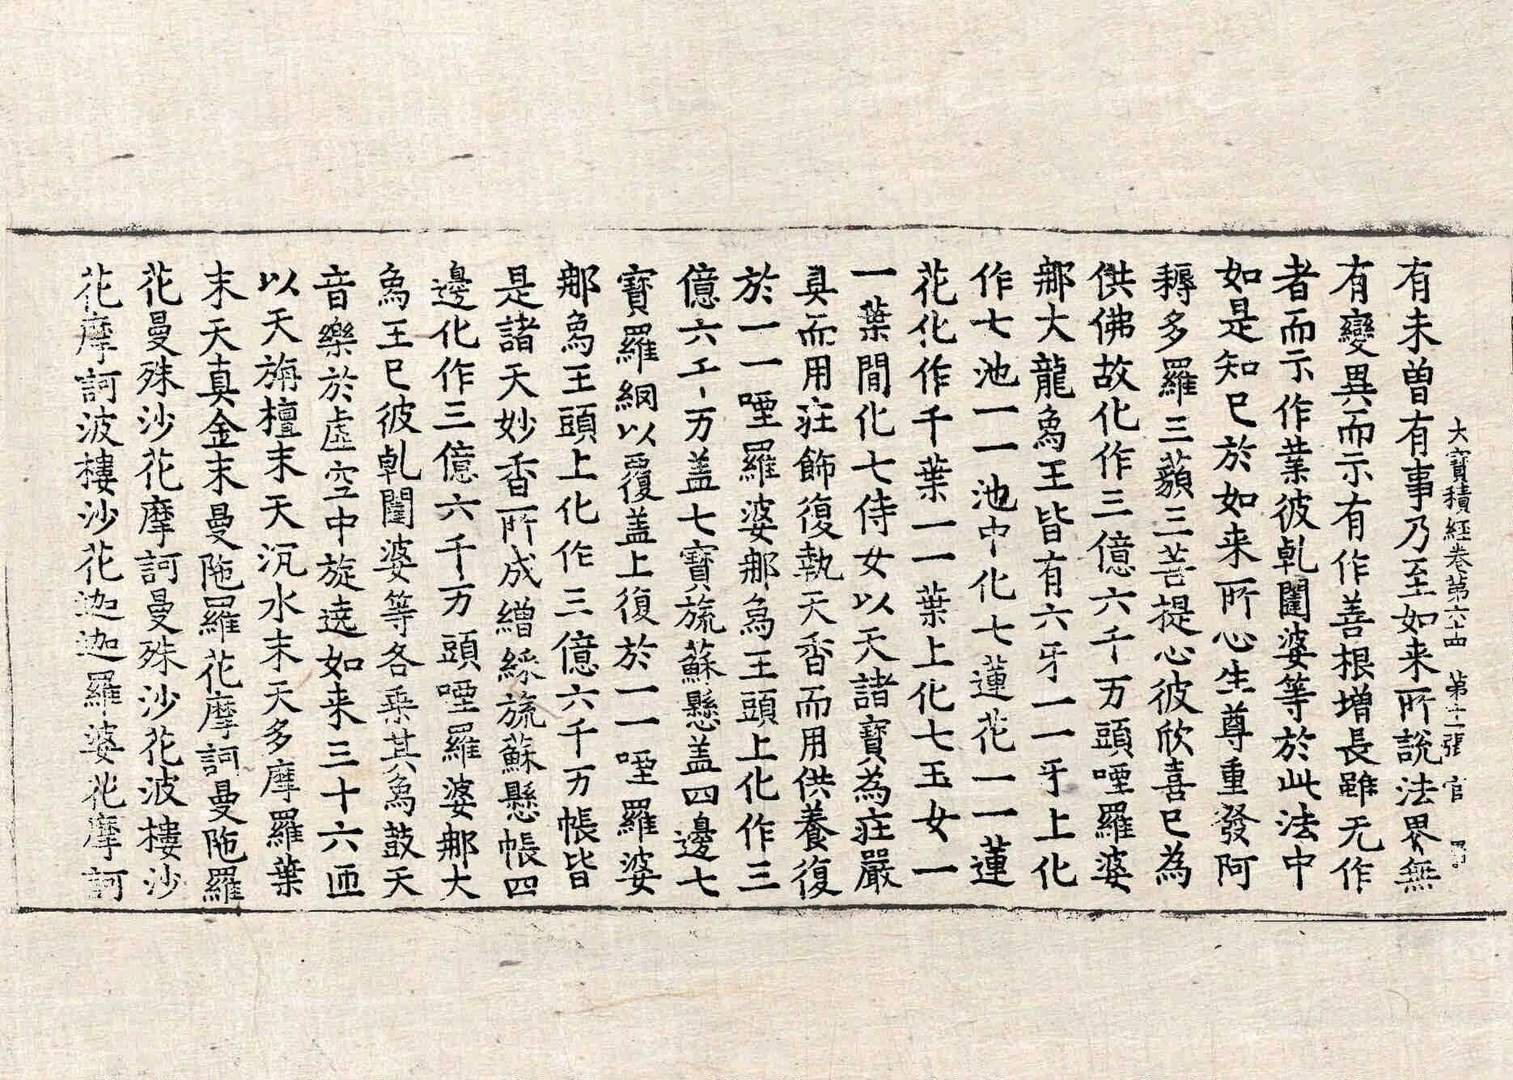 大寶積經卷第六十四　第十張　官
有未曽有事乃至如来所說法界無
有變異而示有作善根増長雖无作
者而示作業彼乹闥婆等於此法中
如是知已於如来所心生尊重發阿
耨多羅三藐三菩提心彼欣喜已為
供佛故化作三億六千万頭堙羅婆
那大龍象王皆有六牙一一牙上化
作七池一一池中化七蓮花一一蓮
花化作千葉一一葉上化七玉女一
一葉間化七侍女以天諸寶為莊嚴
具而用莊飾復執天香而用供養復
於一一堙羅婆那象王頭上化作三
億六千万盖七寶旒蘇懸盖四邊七
寶羅網以覆盖上復於一一堙羅婆
那象王頭上化作三億六千万帳皆
是諸天妙香所成繒綵旒蘇懸帳四
邊化作三億六千万頭堙羅婆那大
象王已彼乹闥婆等各乗其象鼓天
音樂於虛空中旋遶如来三十六匝
以天旃檀末天沉水末天多摩羅葉
末天真金末曼陁羅花摩訶曼陁羅
花曼殊沙花摩訶曼殊沙花波樓沙
花摩訶波樓沙花迦迦羅婆花摩訶